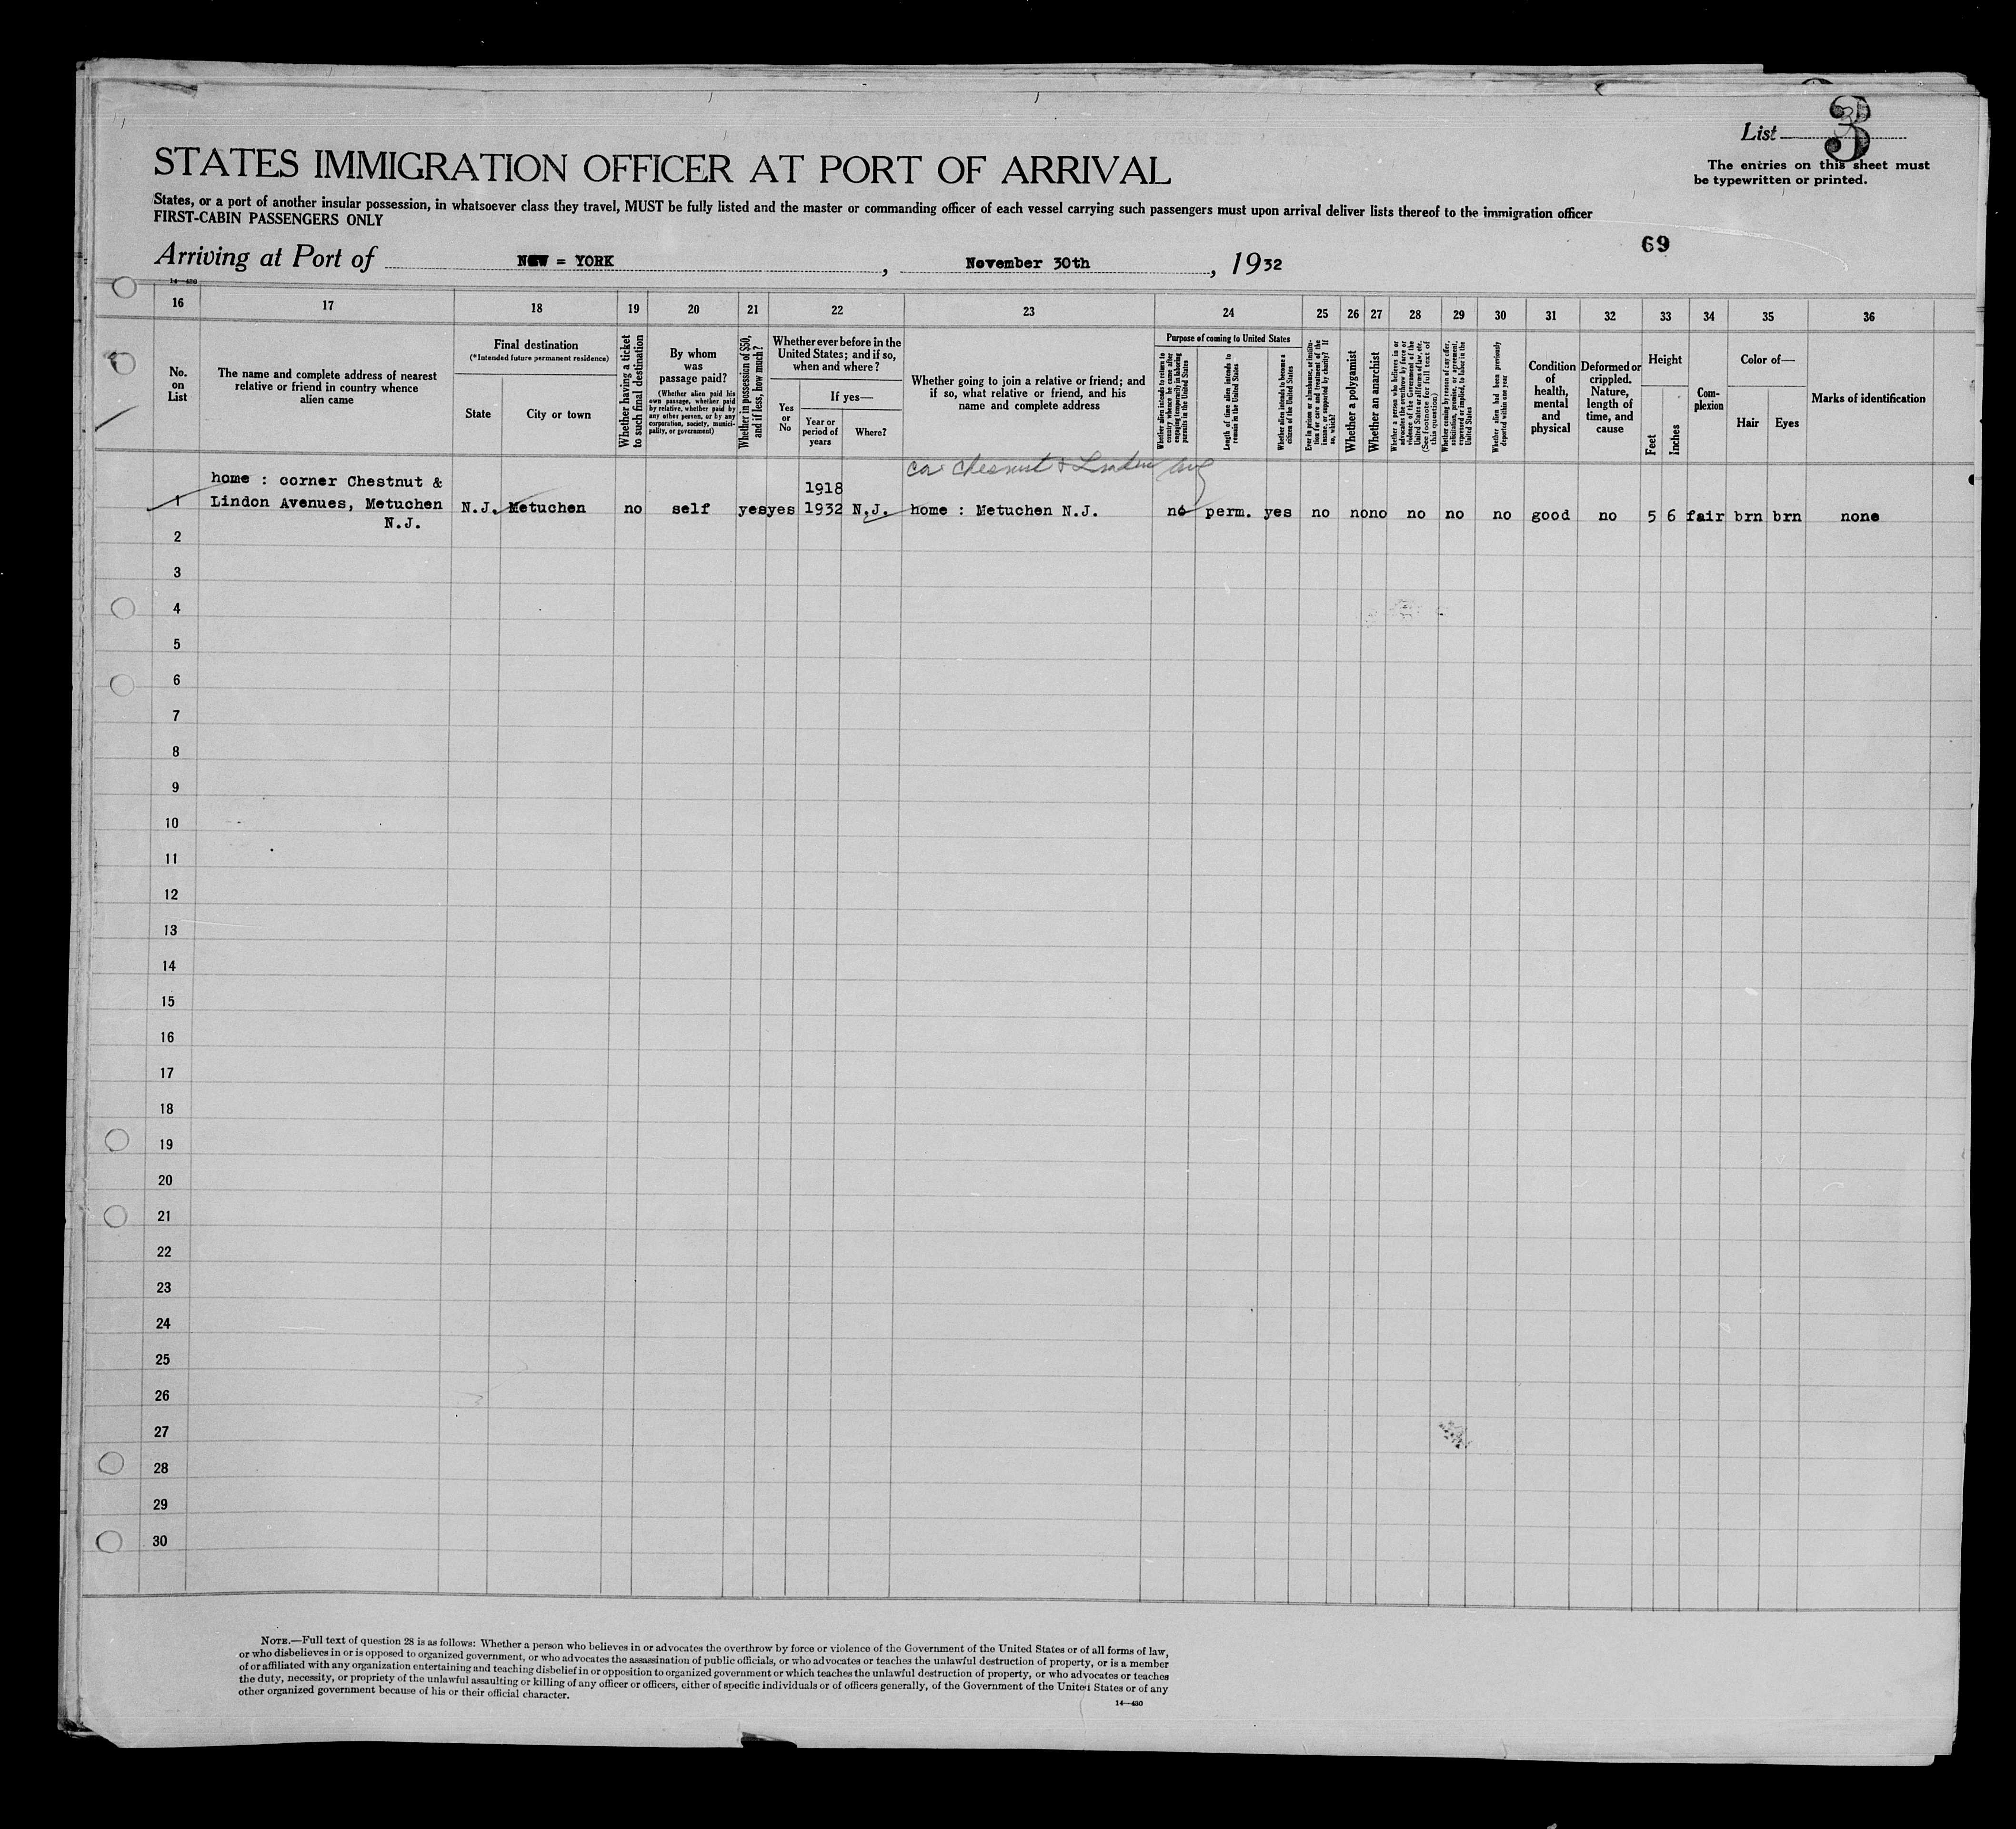 List 3
The entries on this sheet must
be typewritten or printed.
STATES IMMIGRATION OFFICER AT PORT OF ARRIVAL
States, or a port of another insular possession, in whatsoever class they travel, MUST be fully listed and the master or commanding officer of each vessel carrying such passengers must upon arrival deliver lists thereof to the immigration officer
FIRST-CABIN PASSENGERS ONLY
69
Arriving at Port of NEW = YORK, November 30th, 1932
14—430
16 17 18 19 20 21 22 23 24 25 26 27 28 29 30 31 32 33 34 35 36
No.
on
List
The name and complete address of nearest
relative or friend in country whence
alien came
Final destination
(*Intended future permanent residence)
State
City or town
Whether having a ticket
to such final destination
By whom
was
passage paid?
(Whether alien paid his
own passage, whether paid
by relative, whether paid by
any other person, or by any
corporation, society, munici-
pality, or government)
Whether in possession of $50,
and if less, how much?
Whether ever before in the
United States; and if so,
when and where?
Yes
or
No
If yes—
Year or
period of
years
Where?
Whether going to join a relative or friend; and
if so, what relative or friend, and his
name and complete address
Purpose of coming to United States
Whether alien intends to return to
country whence he came after
engaging temporarily in laboring
pursuits in the United States
Length of time alien intends to
remain in the United States
Whether alien intends to become a
citizen of the United States
Ever in prison or almshouse, or institu-
tion for care and treatment of the
insane, or supported by charity? If
so, which?
Whether a polygamist
Whether an anarchist
Whether a person who believes in or
advocates the overthrow by force or
violence of the Government of the
United States or all forms of law, etc.
(See footnote for full text of
this question)
Whether coming by reason of any offer,
solicitation, promise, or agreement,
expressed or implied, to labor in the
United States
Whether alien had been previously
deported within one year
Condition
of
health,
mental
and
physical
Deformed or
crippled.
Nature,
length of
time, and
cause
Height
Feet
Inches
Com-
plexion
Color of—
Hair
Eyes
Marks of identification
cor Chesnut & Linden Avs
home : corner Chestnut &
1918
1 Lindon Avenues, Metuchen N.J. Metuchen no self yes yes 1932 N.J. home : Metuchen N.J. no perm. yes no no no no no no good no 5 6 fair brn brn none
N.J.
2
3
4
5
6
7
8
9
10
11
12
13
14
15
16
17
18
19
20
21
22
23
24
25
26
27
28
29
30
NOTE.—Full text of question 28 is as follows: Whether a person who believes in or advocates the overthrow by force or violence of the Government of the United States or of all forms of law,
or who disbelieves in or is opposed to organized government, or who advocates the assassination of public officials, or who advocates or teaches the unlawful destruction of property, or is a member
of or affiliated with any organization entertaining and teaching disbelief in or opposition to organized government or which teaches the unlawful destruction of property, or who advocates or teaches
the duty, necessity, or propriety of the unlawful assaulting or killing of any officer or officers, either of specific individuals or of officers generally, of the Government of the United States or of any
other organized government because of his or their official character.
14—430